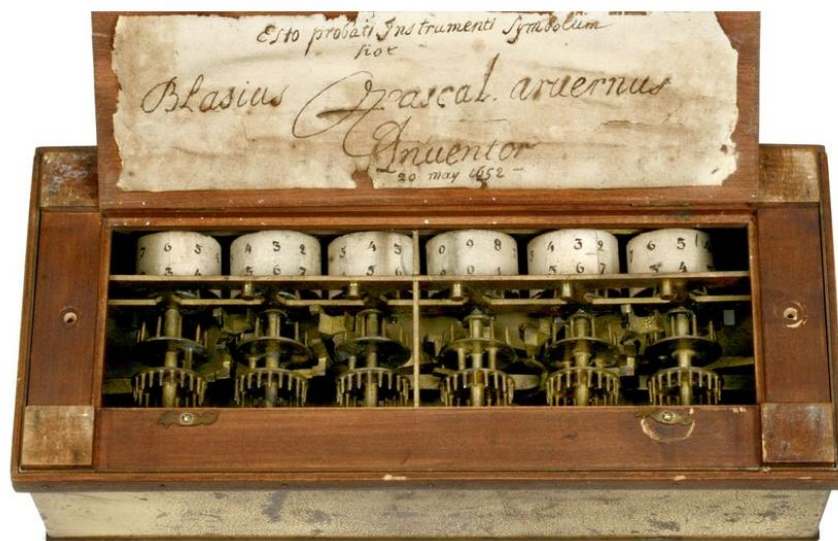 Esto probati Instrumenti Symbolum
hoc
Blasius Pascal. arvernus
Inventor
20 may 1652 -
7 6 5 4 3 2 5 4 3 0 9 8 4 3 2 6 5
3 4 5 6 7 5 6 0 1 5 6 7 3 4